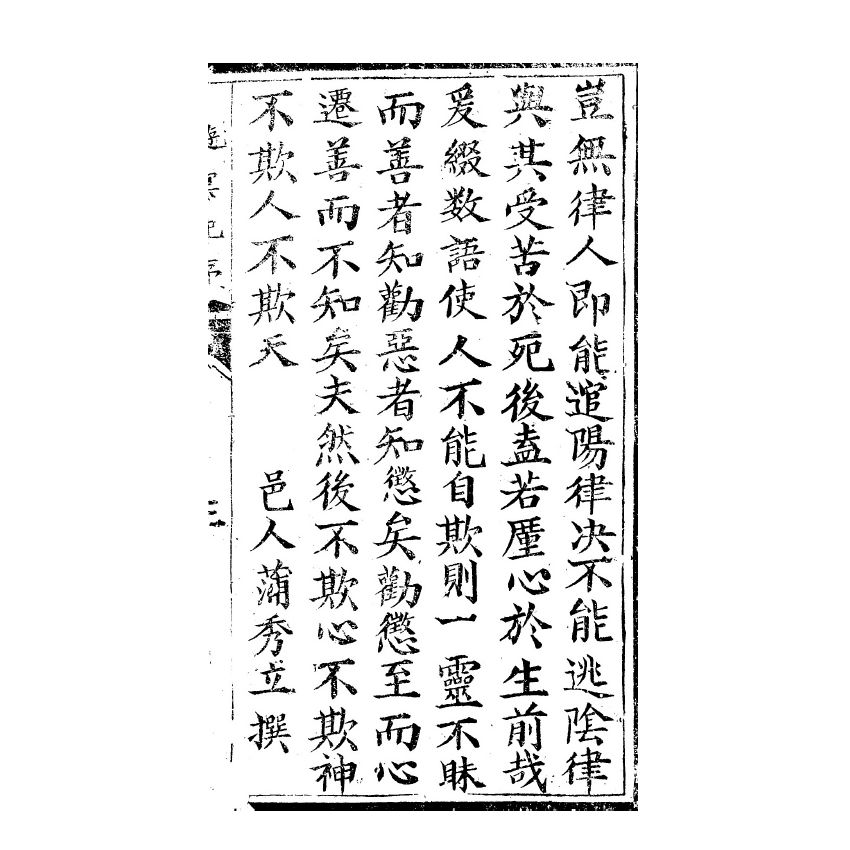 豈無律人即能逭陽律决不能逃陰律
與其受苦於死後盍若厪心於生前哉
爰綴数語使人不能自欺則一靈不昧
而善者知勸惡者知懲矣勸懲至而心
遷善而不知矣夫然後不欺心不欺神
不欺人不欺天　　邑人蒲秀立撰
冥記序